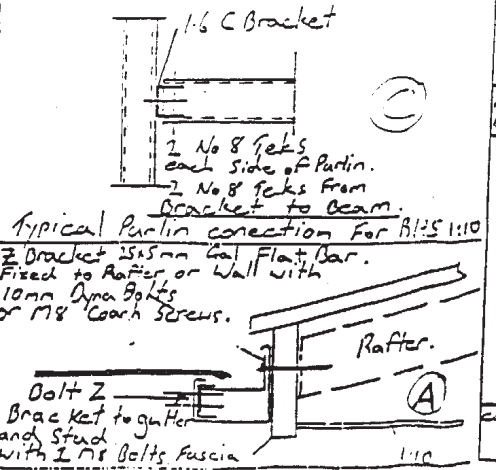 1.6 C Bracket
C
2 No 8 Teks
each Side of Purlin.
2 No 8 Teks From
Bracket to Beam.
Typical Purlin conection For 1:10
Z Bracket 25x5mm Gal Flat Bar.
Fixed to Rafter or Wall with
10mm Dyna Bolts
or M8 Coach Screws.
Rafter.
Bolt Z
Bracket to gutter
and Stud
with 2 M8 Bolts
Fascia
A
1:10